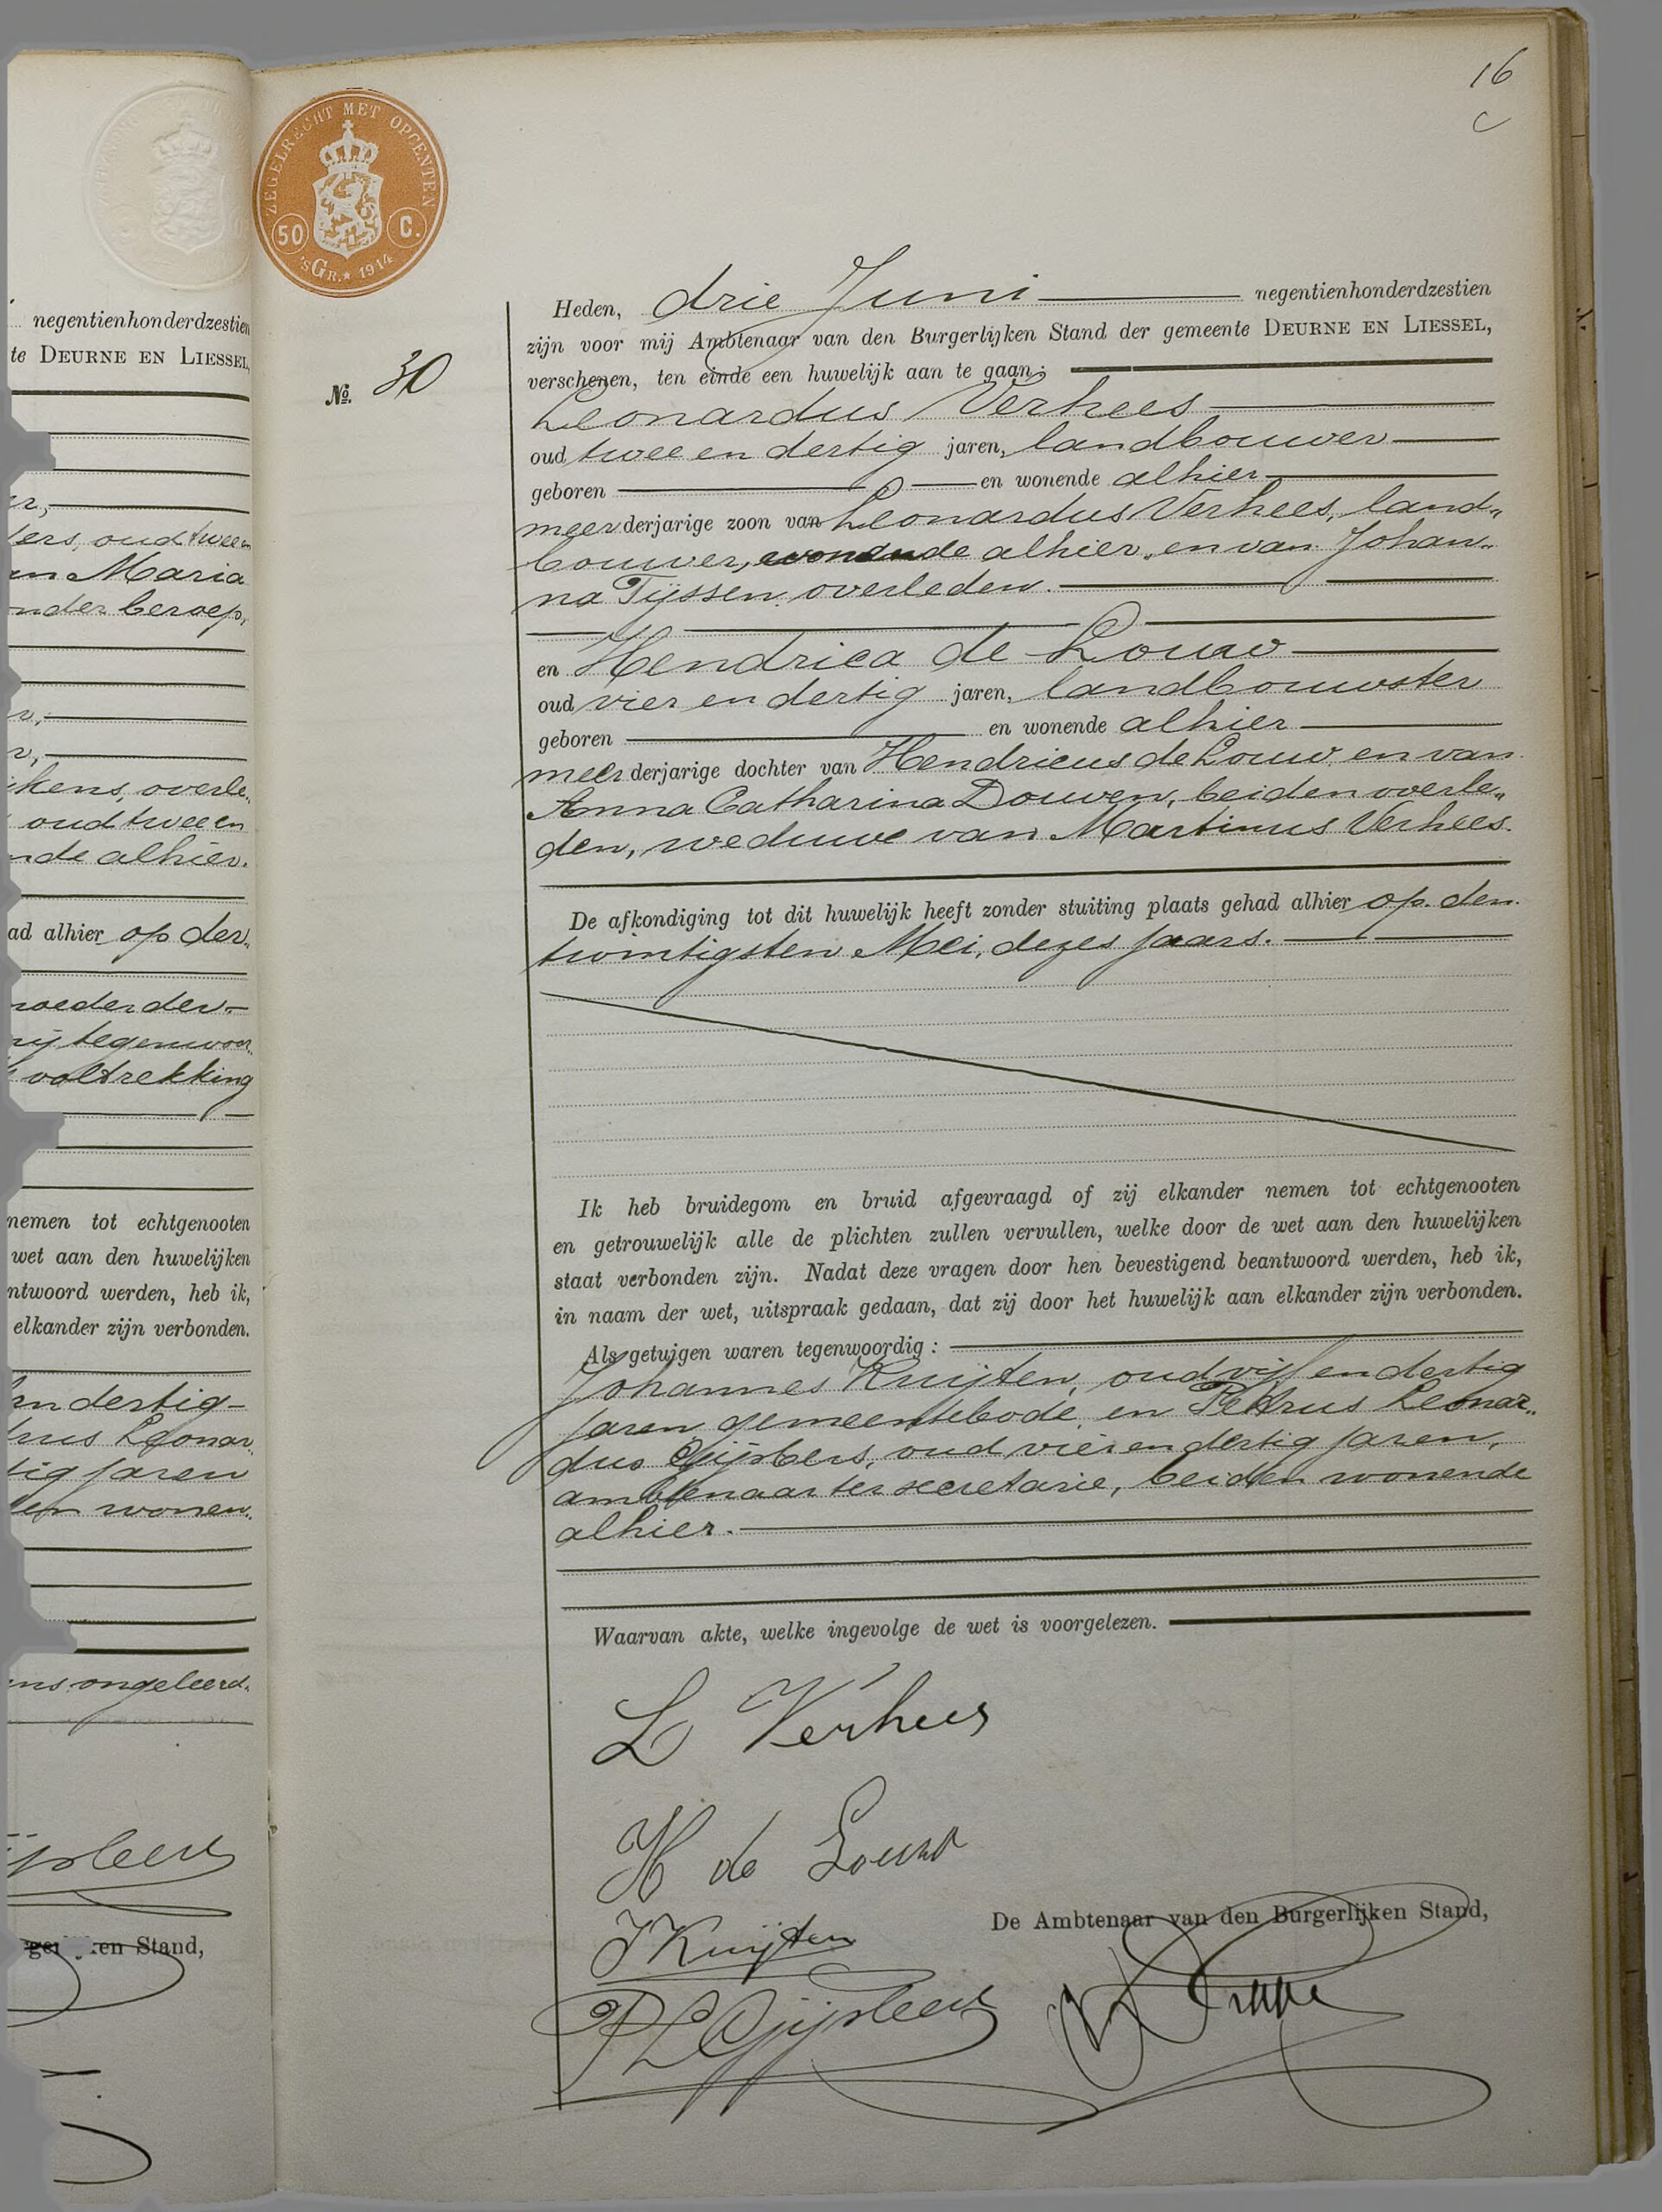 negentienhonderdzestien
te DEURNE EN LIESSEL,
ers, oud twee en
en Maria
onder beroep,
overle„
oud twee en
alhier.
ad alhier op den
moeder der
tegenwoor„
voltrekking
nemen tot echtgenooten
wet aan den huwelijken
ntwoord werden, heb ik,
elkander zijn verbonden.
en dertig
rus Leonar„
tig jaren
wonen„
ongeleerd.
ijsbers
ken Stand,
16
ZEGELRECHT MET OPCENTEN
50 C.
'sGR.★ 1914
No. 30
Heden, drie Juni negentienhonderdzestien
zijn voor mij Ambtenaar van den Burgerlijken Stand der gemeente DEURNE EN LIESSEL,
verschenen, ten einde een huwelijk aan te gaan:
Leonardus Verhees
oud twee en dertig jaren, landbouwer
geboren en wonende alhier
meerderjarige zoon van Leonardus Verhees, land„
bouwer, wonende alhier, en van Johan„
na Tijssen, overleden.
en Hendrica de Louw
oud vier en dertig jaren, landbouwster
geboren en wonende alhier
meerderjarige dochter van Hendricus de Louw en van
Anna Catharina Douwen, beiden overle„
den, weduwe van Martinus Verhees.
De afkondiging tot dit huwelijk heeft zonder stuiting plaats gehad alhier op den
twintigsten Mei, dezes jaars.
Ik heb bruidegom en bruid afgevraagd of zij elkander nemen tot echtgenooten
en getrouwelijk alle de plichten zullen vervullen, welke door de wet aan den huwelijken
staat verbonden zijn. Nadat deze vragen door hen bevestigend beantwoord werden, heb ik,
in naam der wet, uitspraak gedaan, dat zij door het huwelijk aan elkander zijn verbonden.
Als getuigen waren tegenwoordig:
Johannes Kruijten, oud vijf en dertig
jaren, gemeentebode, en Petrus Leonar„
dus Gijsbers, oud vier en dertig jaren,
ambtenaar ter secretarie, beiden wonende
alhier.
Waarvan akte, welke ingevolge de wet is voorgelezen.
L Verhees
H de Louw
J Kruijten
De Ambtenaar van den Burgerlijken Stand,
P L Gijsbers